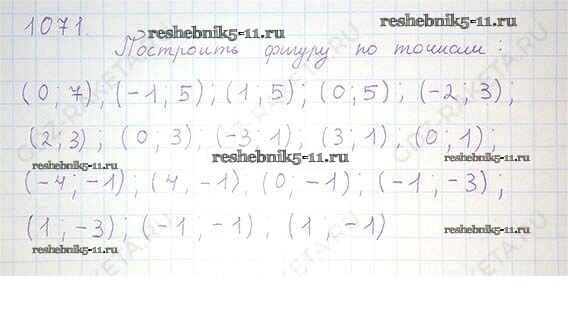 1071.
reshebnik5-11.ru reshebnik5-11.ru
Построить фигуру по точкам:
(0; 7), (-1; 5); (1; 5); (0; 5); (-2; 3);
(2; 3); (0; 3); (-3; 1), (3; 1), (0; 1);
reshebnik5-11.ru reshebnik5-11.ru
(-4; -1); (4, -1), (0; -1); (-1; -3);
(1; -3); (-1; -1); (1; -1)
reshebnik5-11.ru reshebnik5-11.ru
GDZ-RAKETA.RU